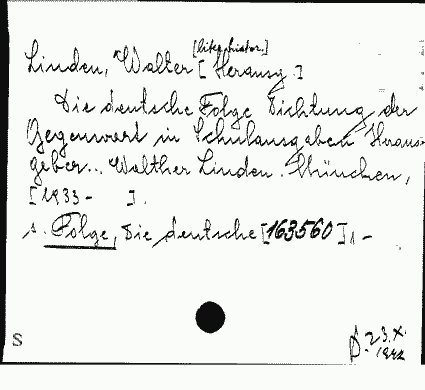 [liter. histor.]
Linden, Walter [Herausg.]
Die deutsche Folge Dichtung der
Gegenwart in Schulausgaben Heraus-
geber... Walther Linden. München,
[1933- ].
s. Folge, Die deutsche [163560] 1-
S
23.X.
1942